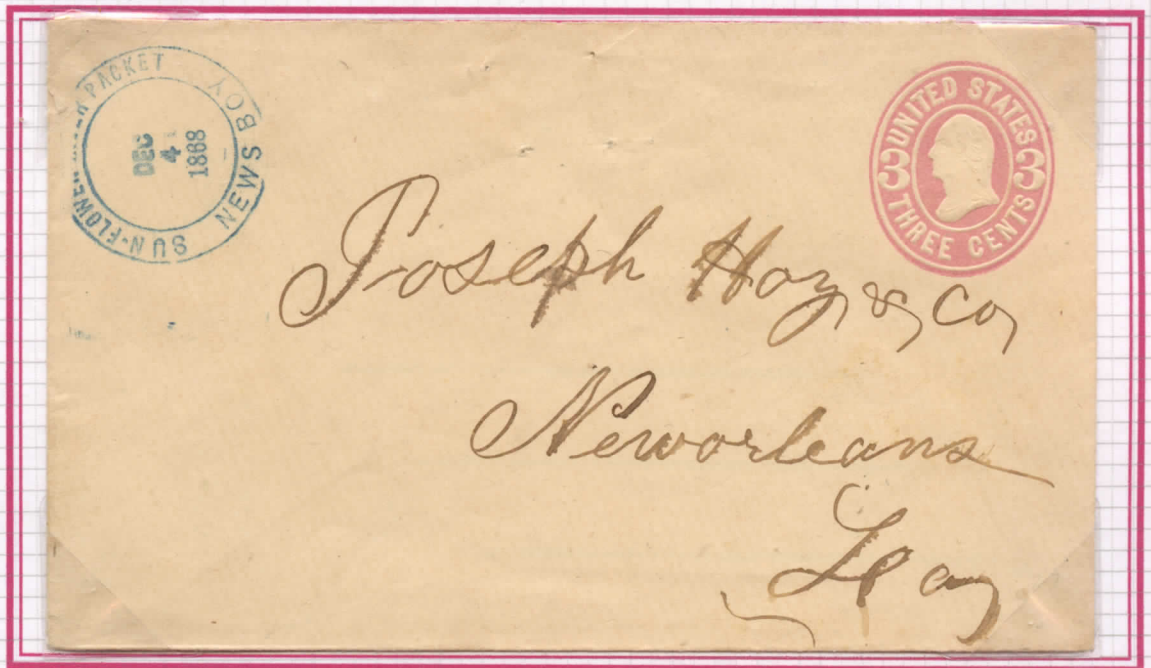 SUN-FLOWER RIVER PACKET
NEWS BOY
DEC
4
1868
UNITED STATES
3 3
THREE CENTS
Joseph Hoy & Co,
Neworleans
La